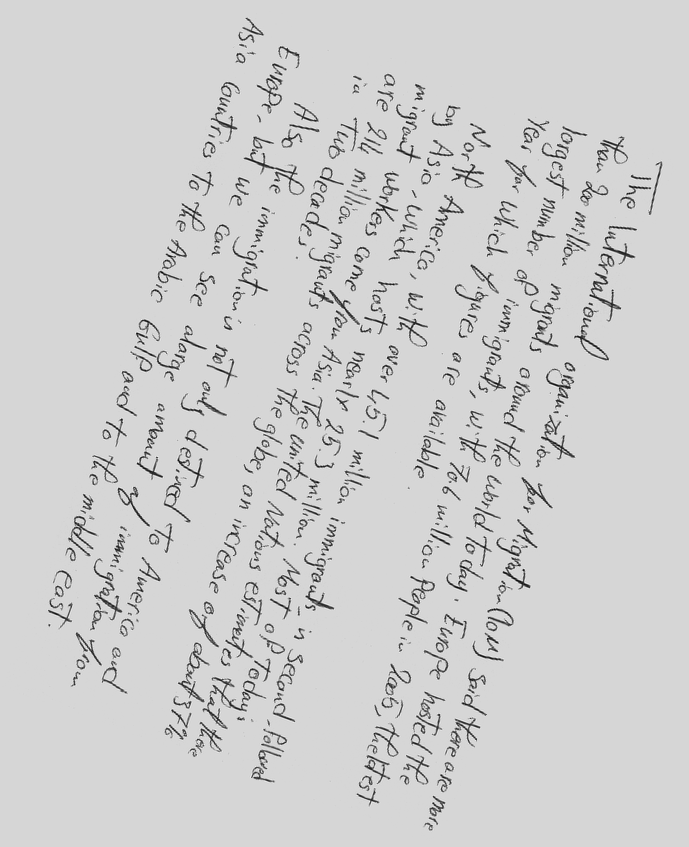 The International organization for Migration (IOM) said there are more
than 200 million migrants around the world today. Europe hosted the
largest number of immigrants, with 70.6 million people in 2005, the latest
year for which figures are available.
North America, with over 45.1 million immigrants is second, followed
by Asia, which hosts nearly 25.3 million. Most of today's
migrant workers come from Asia. The united Nations estimates that there
are 214 million migrants across the globe, an increase of about 37%
in Two decades.
Also the immigration is not only destined to America and
Europe, but we can see alarge amount of immigration from
Asia Countries to the Arabic Gulf and to the middle east.